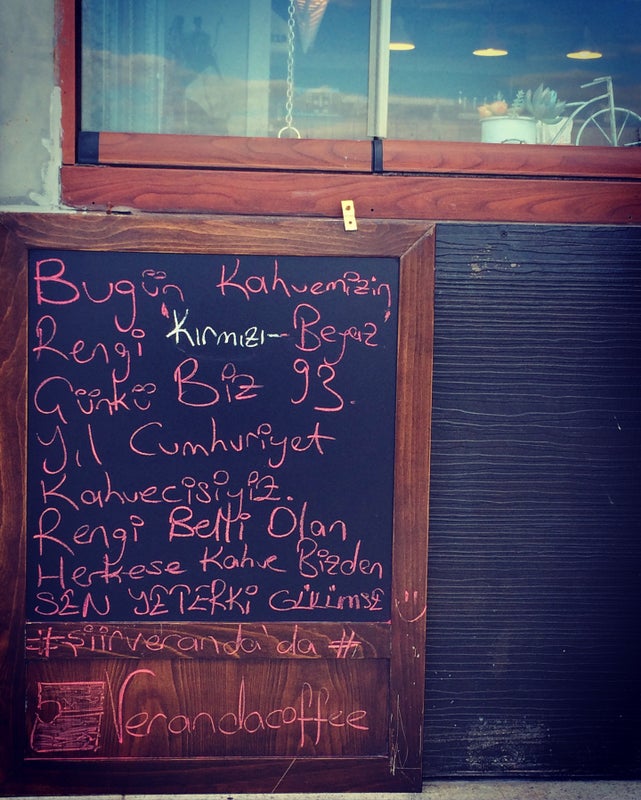 Bugün Kahvemizin
Rengi "Kırmızı-Beyaz"
Günkü Biz 93.
Yıl Cumhuriyet
Kahvecisiyiz.
Rengi Belli Olan
Herkese Kahve Bizden
SEN YETERKİ GÜLÜMSE :)
#şiirveranda'da #
Verandacoffee